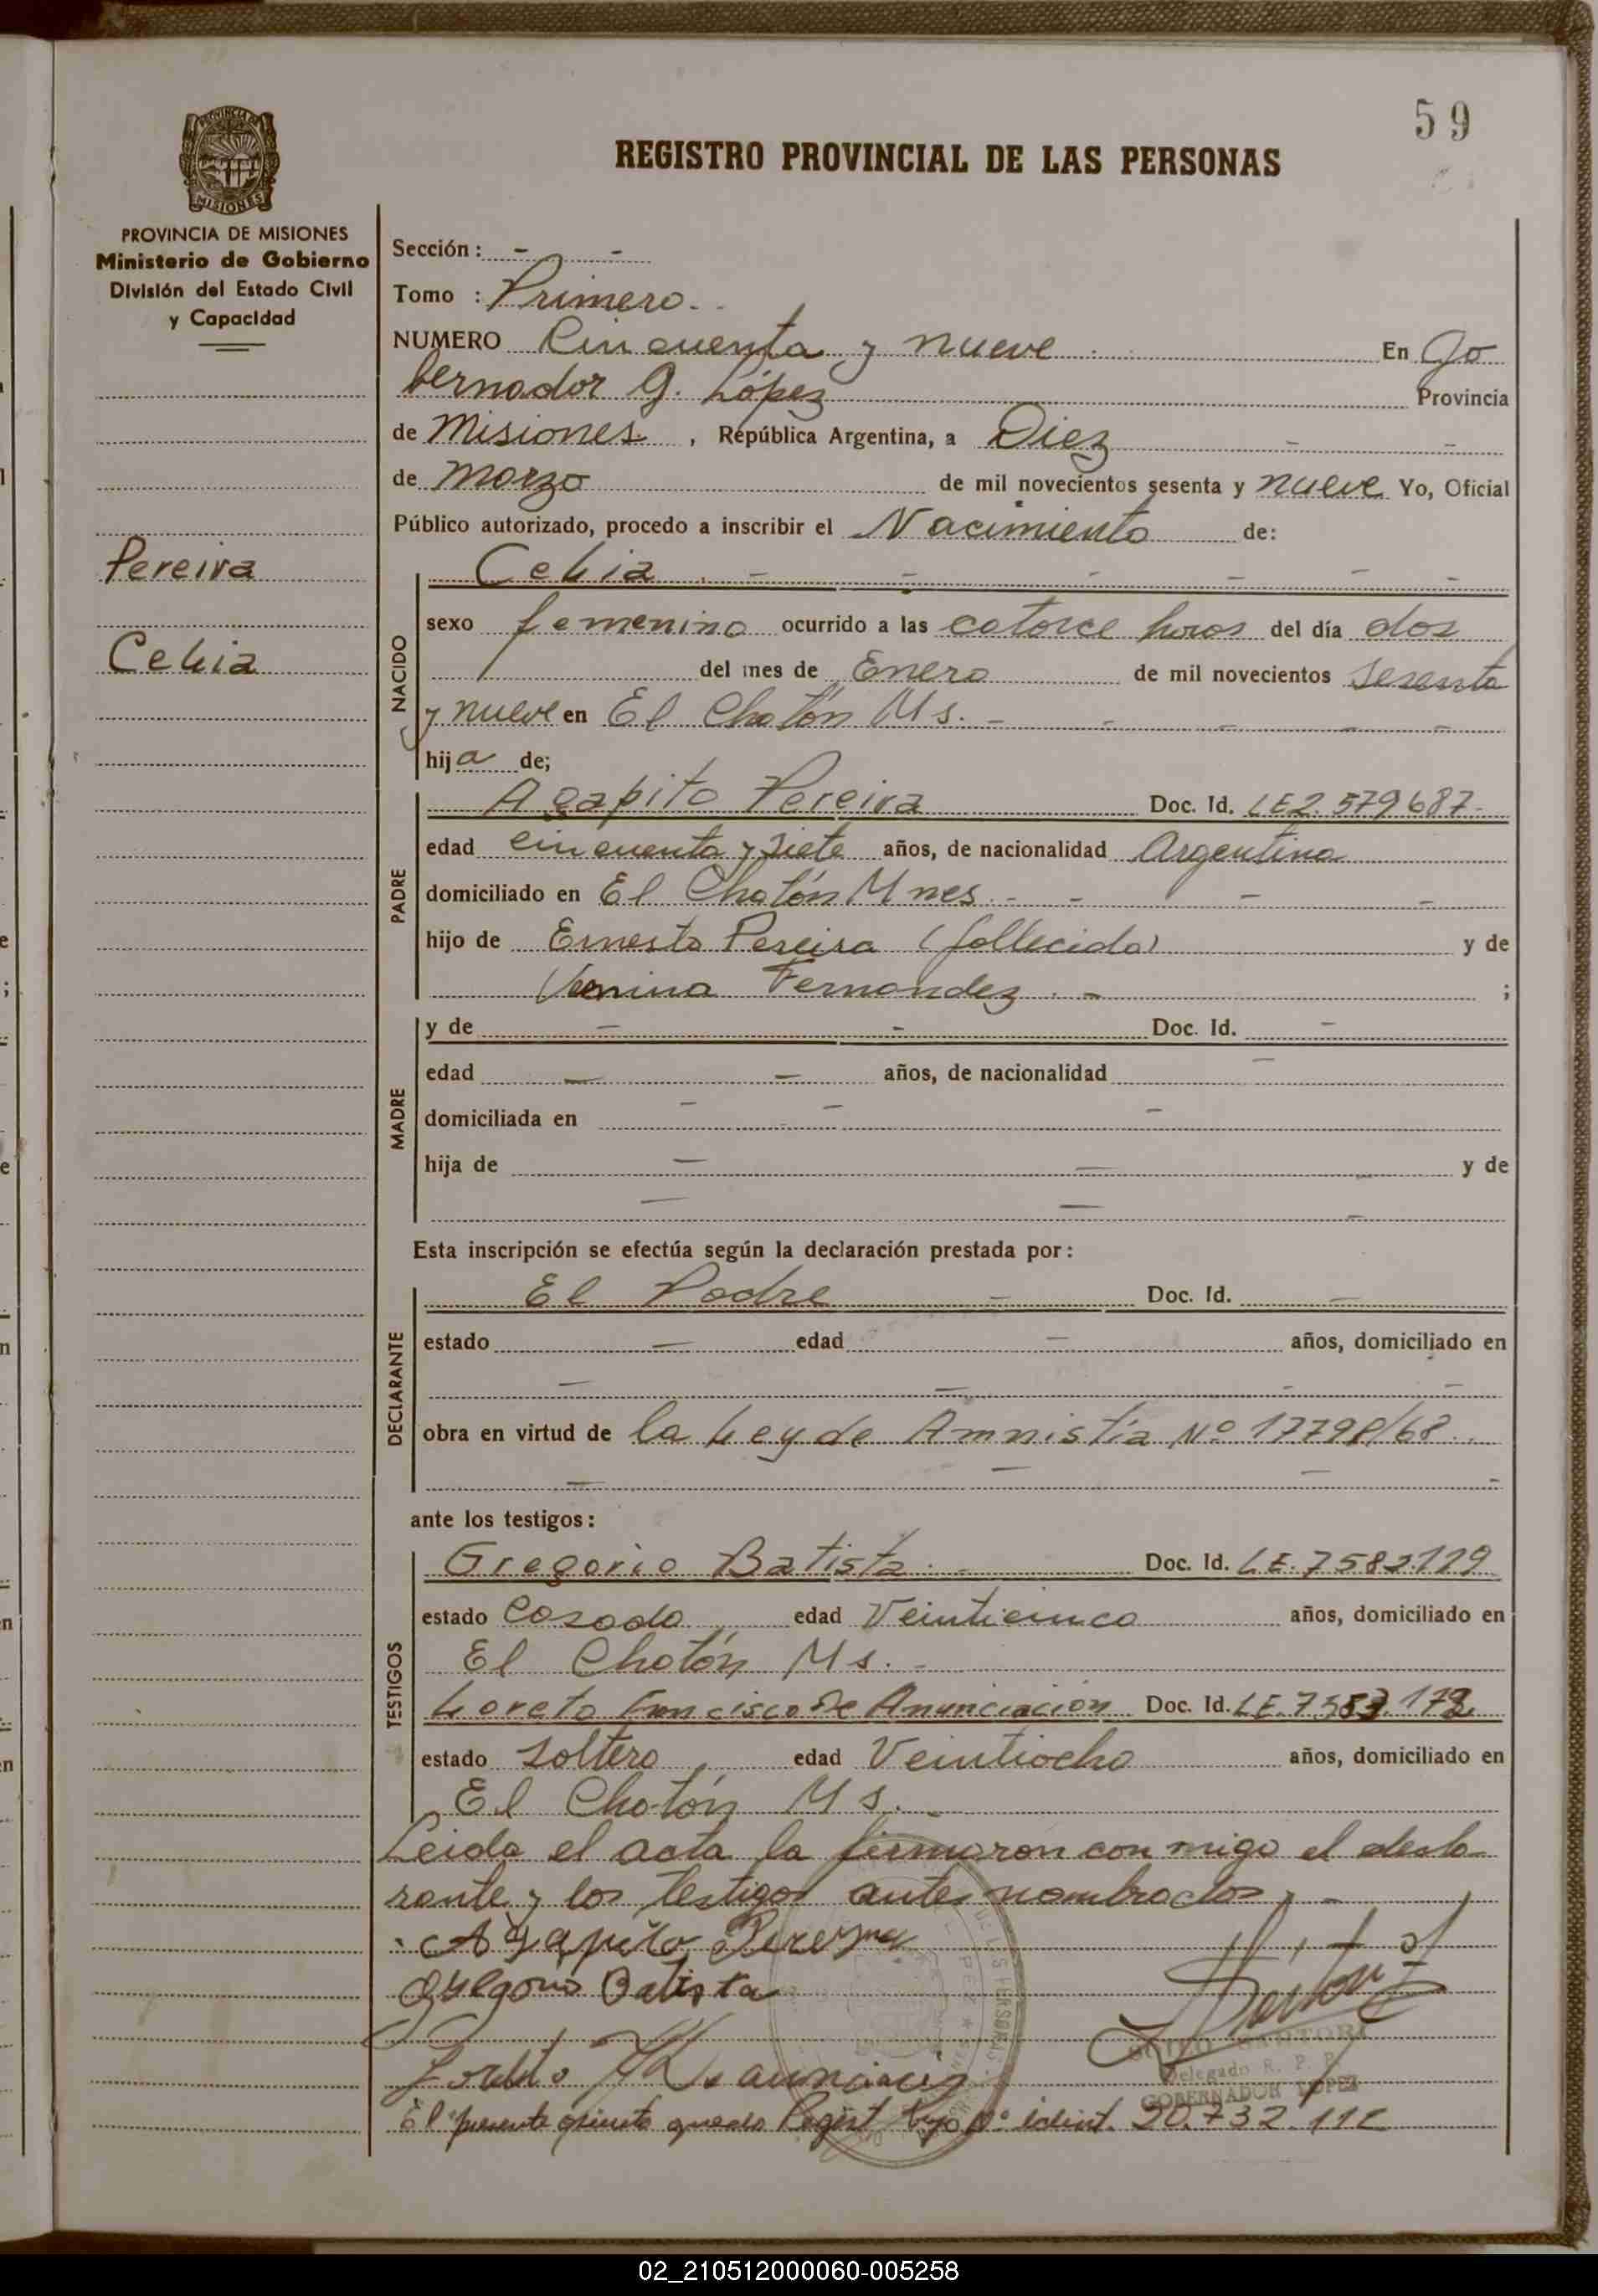 59
REGISTRO PROVINCIAL DE LAS PERSONAS
PROVINCIA DE MISIONES
Ministerio de Gobierno
División del Estado Civil
y Capacidad
Pereira
Celia
Sección : - -
Tomo : Primero.
NUMERO Cincuenta y nueve . En Go
bernador G. López Provincia
de Misiones , República Argentina, a Diez - -
de Marzo de mil novecientos sesenta y nueve Yo, Oficial
Público autorizado, procedo a inscribir el Nacimiento de:
NACIDO
Celia . - - - - - -
sexo femenino ocurrido a las catorce horas del día dos
del mes de Enero de mil novecientos sesenta
y nueve en El Chatón Ms. - - - - -
hija de;
PADRE
Agapito Pereira Doc. Id. LE2.579687-
edad cincuenta y siete años, de nacionalidad Argentina
domiciliado en El Chatón Mnes. - - - -
hijo de Ernesto Pereira (fallecido) y de
Fernandez . - ;
MADRE
y de - - Doc. Id. -
edad - - años, de nacionalidad -
domiciliada en - - -
hija de - - - y de
- - -
Esta inscripción se efectúa según la declaración prestada por:
DECLARANTE
El Padre - Doc. Id. -
estado - edad - años, domiciliado en
- - - -
obra en virtud de la Ley de Amnistía Nº 17798/68 ..
- - - -
ante los testigos:
TESTIGOS
Gregorio Batista . - Doc. Id. L.E. 7582.129
estado Casado edad Veinticinco años, domiciliado en
El Chatón Ms. -
Loreto Francisco De Anunciación Doc. Id. LE.
estado Soltero edad Veintiocho años, domiciliado en
El Chatón Ms. -
Leida el acta la firmaron con migo el decla-
rante y los testigos antes nombrados . -
Agapito Pereyra
Gregorio Batista
Loreto
SARTORI
Delegado R. P. P.
GOBERNADOR LOPEZ
El presente queda Regist. bajo Nº ident. 20.732.
02_210512000060-005258